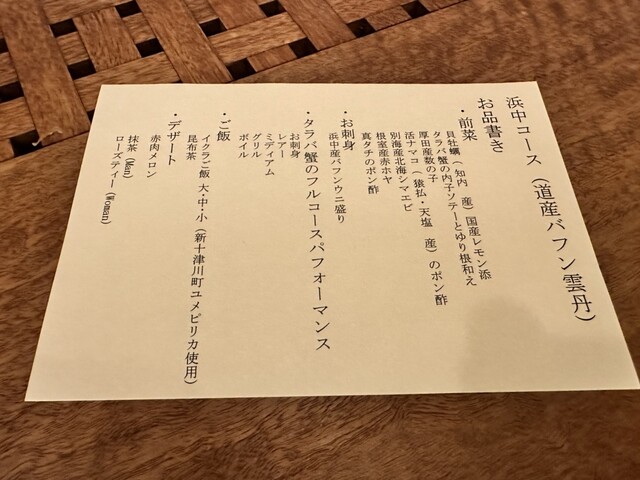 浜中コース（道産バフン雲丹）
お品書き
・前菜
貝牡蠣（知内 産）国産レモン添
タラバ蟹の内子ソテーとゆり根和え
厚田産数の子
活ナマコ（猿払・天塩 産）のポン酢
別海産北海シマエビ
根室産赤ホヤ
真タチのポン酢
・お刺身
浜中産バフンウニ盛り
・タラバ蟹のフルコースパフォーマンス
お刺身
レアー
ミディアム
グリル
ボイル
・ご飯
イクラご飯 大・中・小（新十津川町ユメピリカ使用）
昆布茶
・デザート
赤肉メロン
抹茶（Man）
ローズティー（Woman）